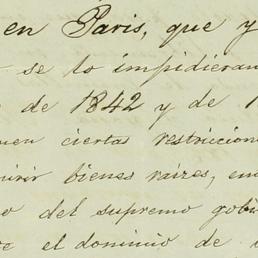 en Paris, que y
se lo impidieran
de 1842 y de 1
ciertas restriccion
bienes raizes, en
del supremo gobi
el dominio de